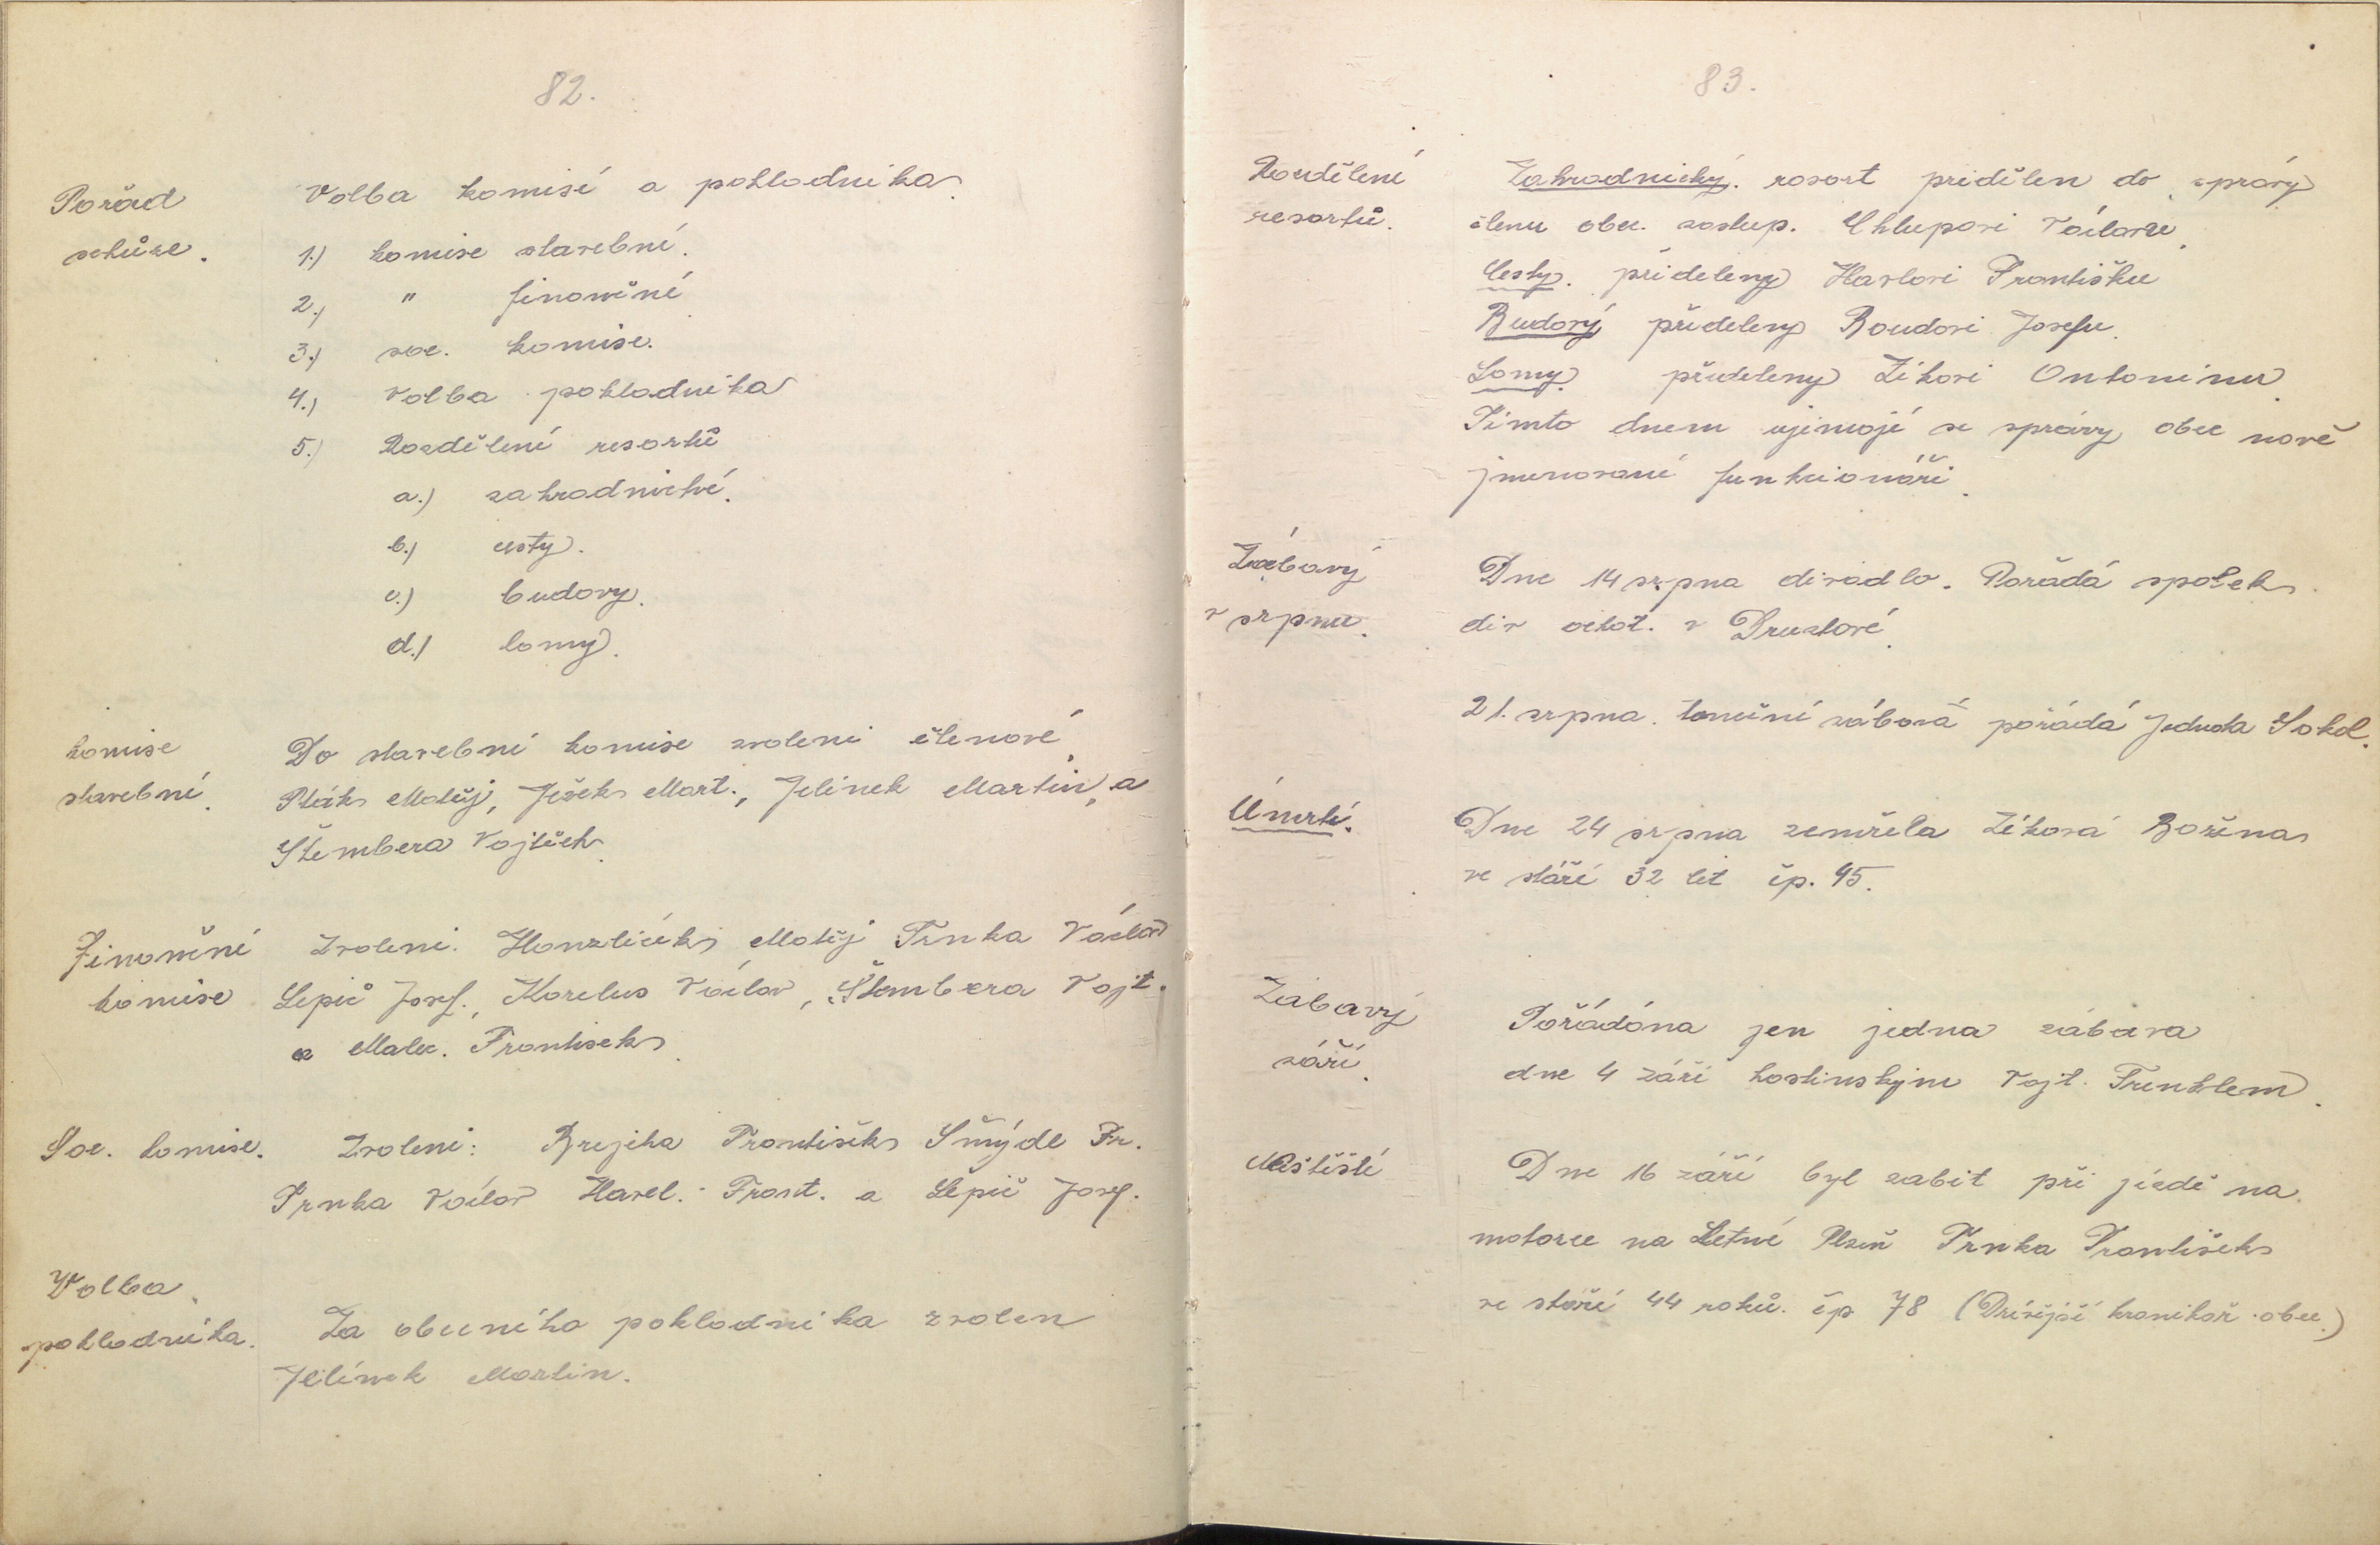 82.
Pořad
schůze.
Volba komisí a pokladnika
1.) komise stavební.
2.) " finanční
3.) soc. komise.
4.) Volba pokladnika
5.) Rozdělení resortů
a.) zahradnictví.
b.) cesty.
c.) budovy.
d.) lomy.
komise
stavební.
Do stavební komise zvoleni členové
Pták Matěj, Ježek Mart., Jelínek Martin, a
Štembera Vojtěch.
Finanční
komise
Zvoleni. Honzlíček Matěj Trnka Václav
Lepič Josef., Korelus Václav, Štembera Vojt.
a Malec. František
Soc. komise.
Zvoleni: Brejcha František Šmýdl Fr.
Trnka Václav Havel. Frant. a Lepič Josef.
Volba
pokladníka.
Za obecního pokladnika zvolen
Jelínek Martin.
83.
Rozdělení
resortů.
Zahradnický. rosort pridělen do správy
členu obec. zastup. Chlupovi Václavu.
Cesty. přideleny Havlovi Františku
Budový přideleny Boudovi Josefu.
Lomy. přideleny Zíkovi Antoninu.
Tímto dnem ujímají se správy obce nově
jmenovaní funkcionáři.
Zábavý
v srpnu.
Dne 14 srpna divadlo. Pořádá spolek
div ochot. v Druztové.
21. srpna. taneční zábava pořádá Jednota Sokol.
Úmrtí.
Dne 24 srpna zemřela Zíková Božena
ve stáří 32 let čp. 95.
Zábavý
září.
Pořádána jen jedna zábava
dne 4 září hostinským Vojt. Trenklem.
Neštěstí
Dne 16 září byl zabit při jízdě na
motorce na Letné Plzeň Trnka František
ve stáří 44 roků. čp 78 (Drívější kronikař obce.)